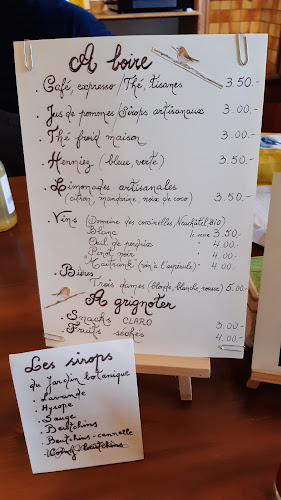 A boire
. Café, expresso / Thé, tisanes 3.50.-
. Jus de pommes / Sirops artisanaux 3.00.-
. Thé froid maison 3.00.-
. Henniez (bleue, verte) 3.50.-
. Limonades artisanales
(citron, mandarine, noix de coco) 3.50.-
. Vins (Domaine des coccinelles, Neuchâtel, BIO)
Blanc le verre 3.50.-
Œil de perdrix " 4.00.-
Pinot noir " 4.00.-
Waldtrunk (vin à l'aspérule) " 4.00.-
. Bières
Trois dames (blonde, blanche, rousse) 5.00.-
A grignoter
. Snacks CLARO 3.00.-
. Fruits séchés 4.00.-
Les sirops
du Jardin botanique
. Lavande
. Hysope
. Sauge
. Beutchins
. Beutchins-cannelle